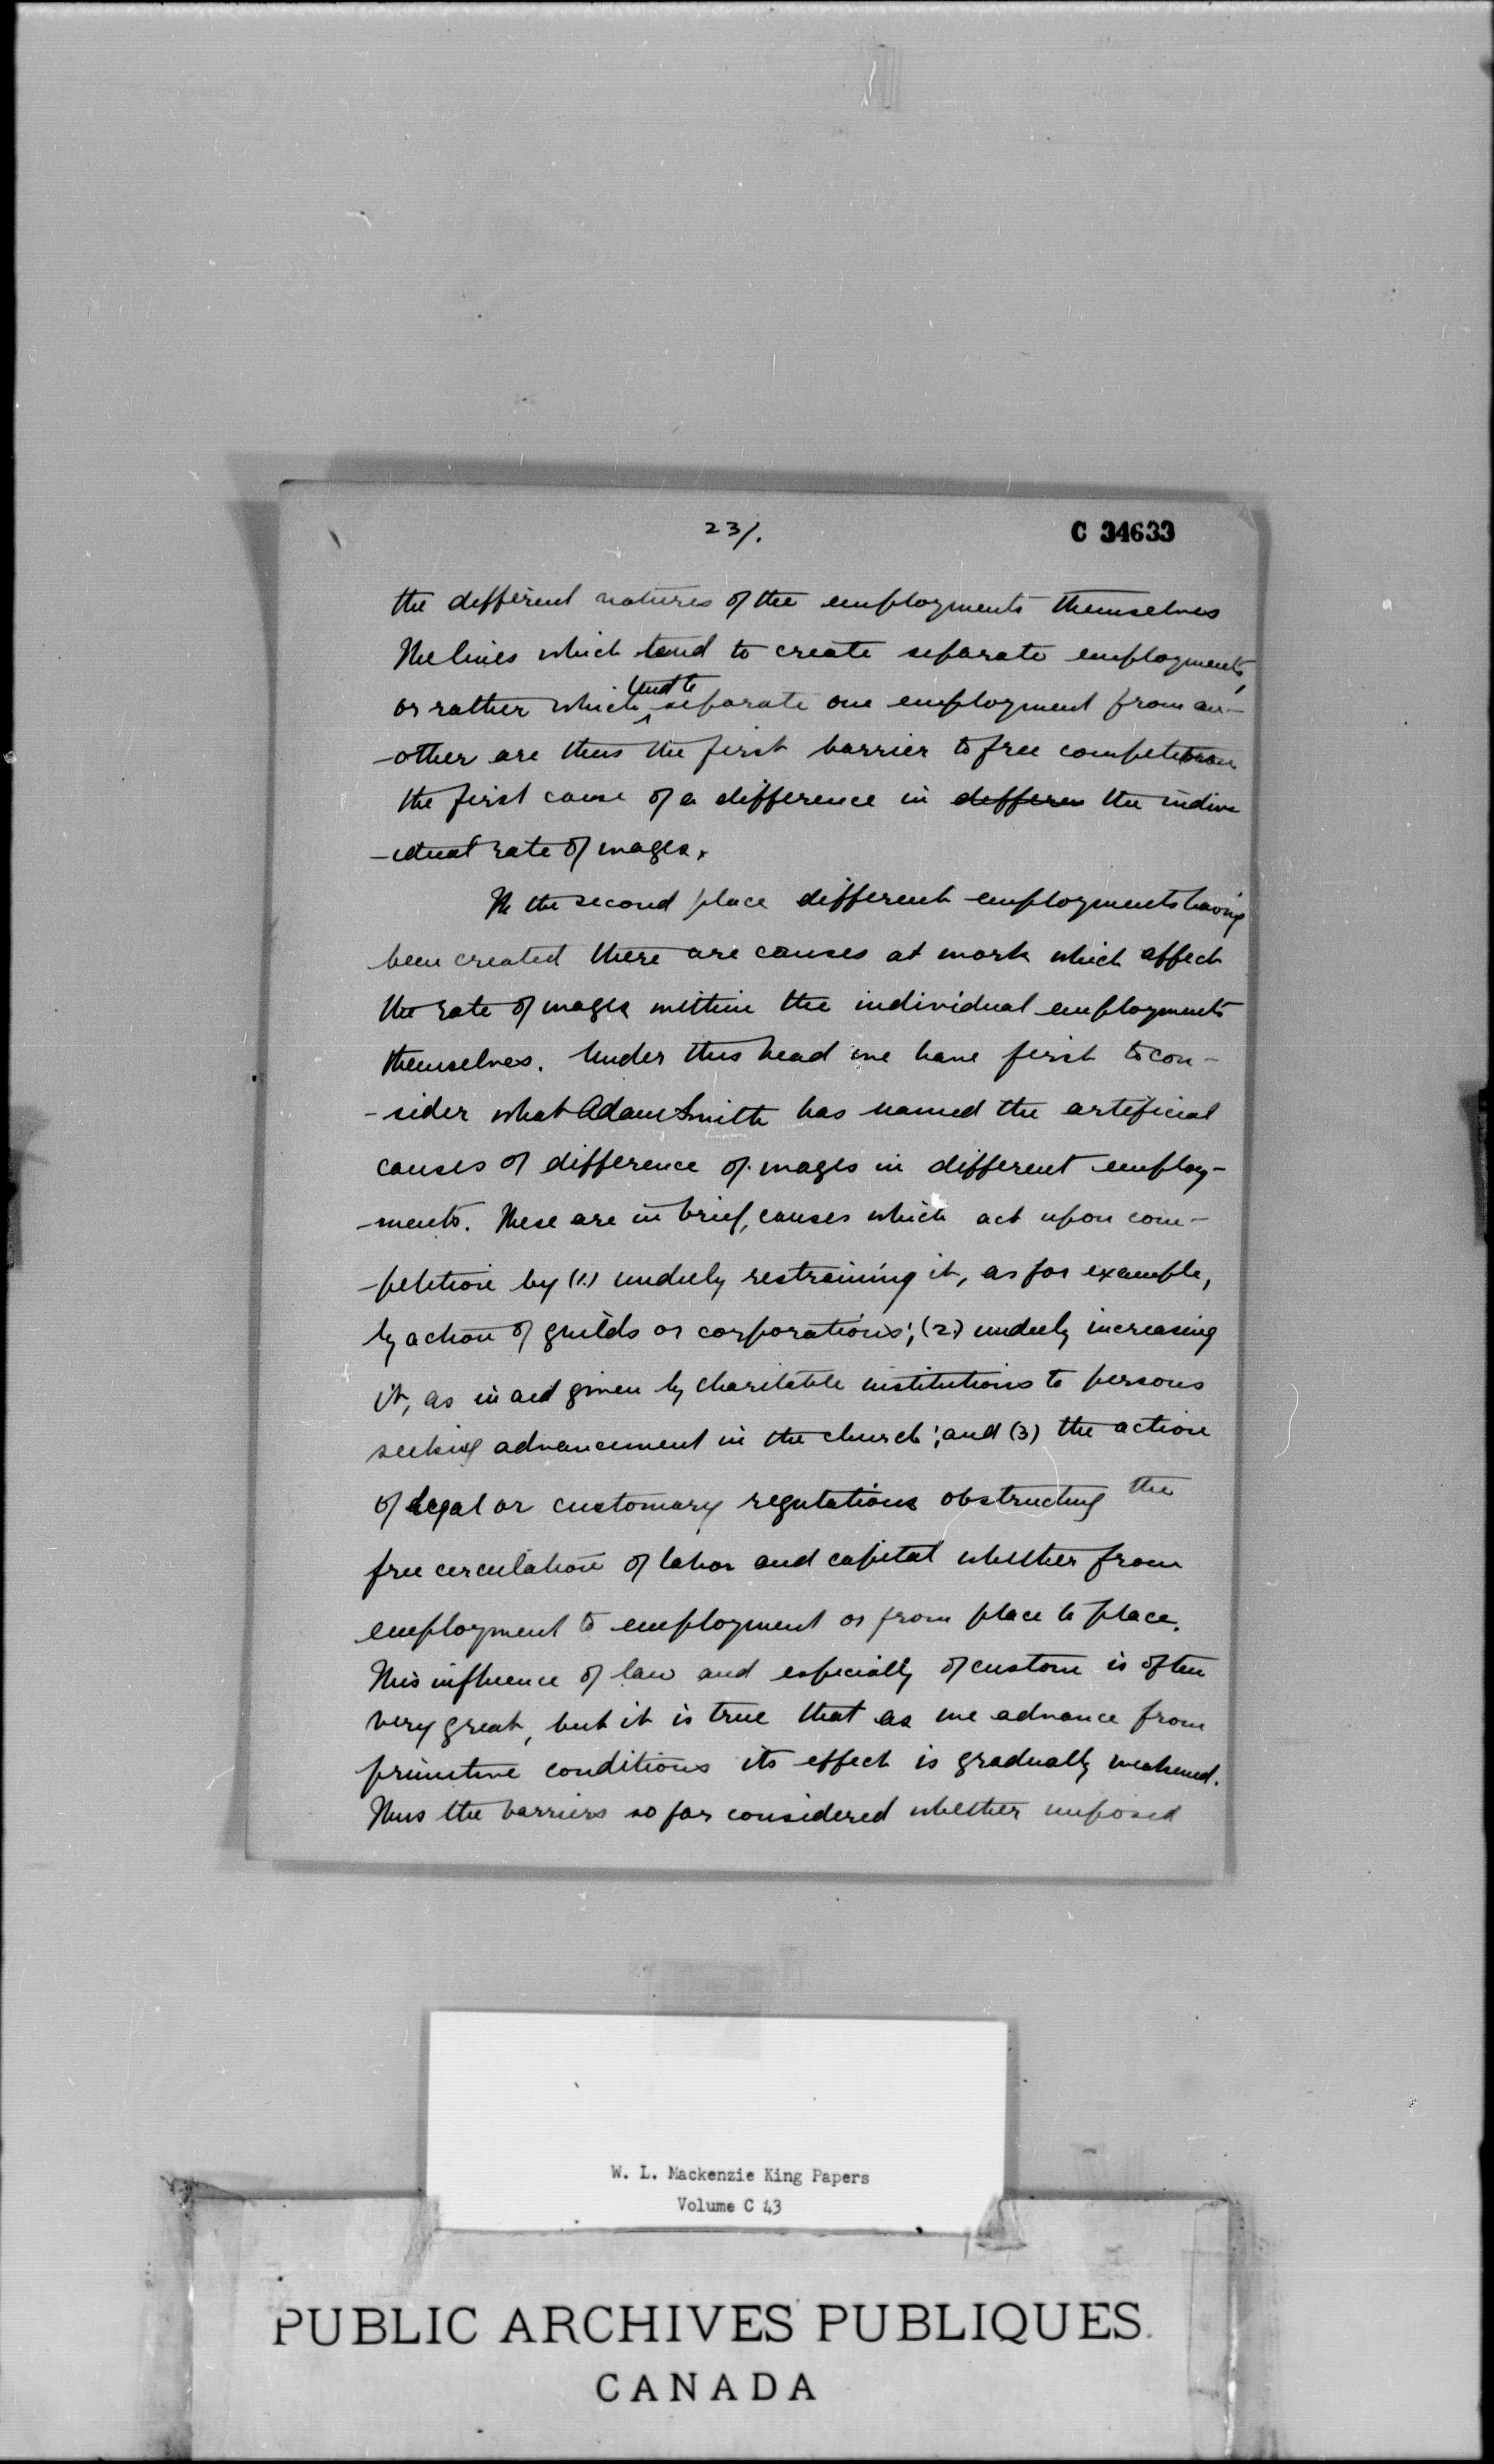 23/.
C 34633
the different natures of the employments themselves
The lines which tend to create separate employments,
tend to
or rather which separate one employment from an-
-other are thus the first barrier to free competition
the first cause of a difference in differen the indivi
-idual rate of wages.
In the second place different employments having
been created there are causes at work which affect
the rate of wages within the individual employments
themselves. Under this head we have first to con-
-sider what Adam Smith has named the artificial
causes of difference of wages in different employ-
-ments. These are in brief, causes which act upon com-
-petition by (1.) unduly restraining it, as for example,
by action of guilds or corporations; (2.) unduly increasing
it, as in aid given by charitable institutions to persons
seeking advancement in the church; and (3) the action
of legal or customary regulations obstructing the
free circulation of labor and capital whether from
employment to employment or from place to place.
This influence of law and especially of custom is often
very great, but it is true that as we advance from
primitive conditions its effect is gradually weakened.
Thus the barriers so far considered whether imposed
W. L. Mackenzie King Papers
Volume C 43
PUBLIC ARCHIVES PUBLIQUES
CANADA